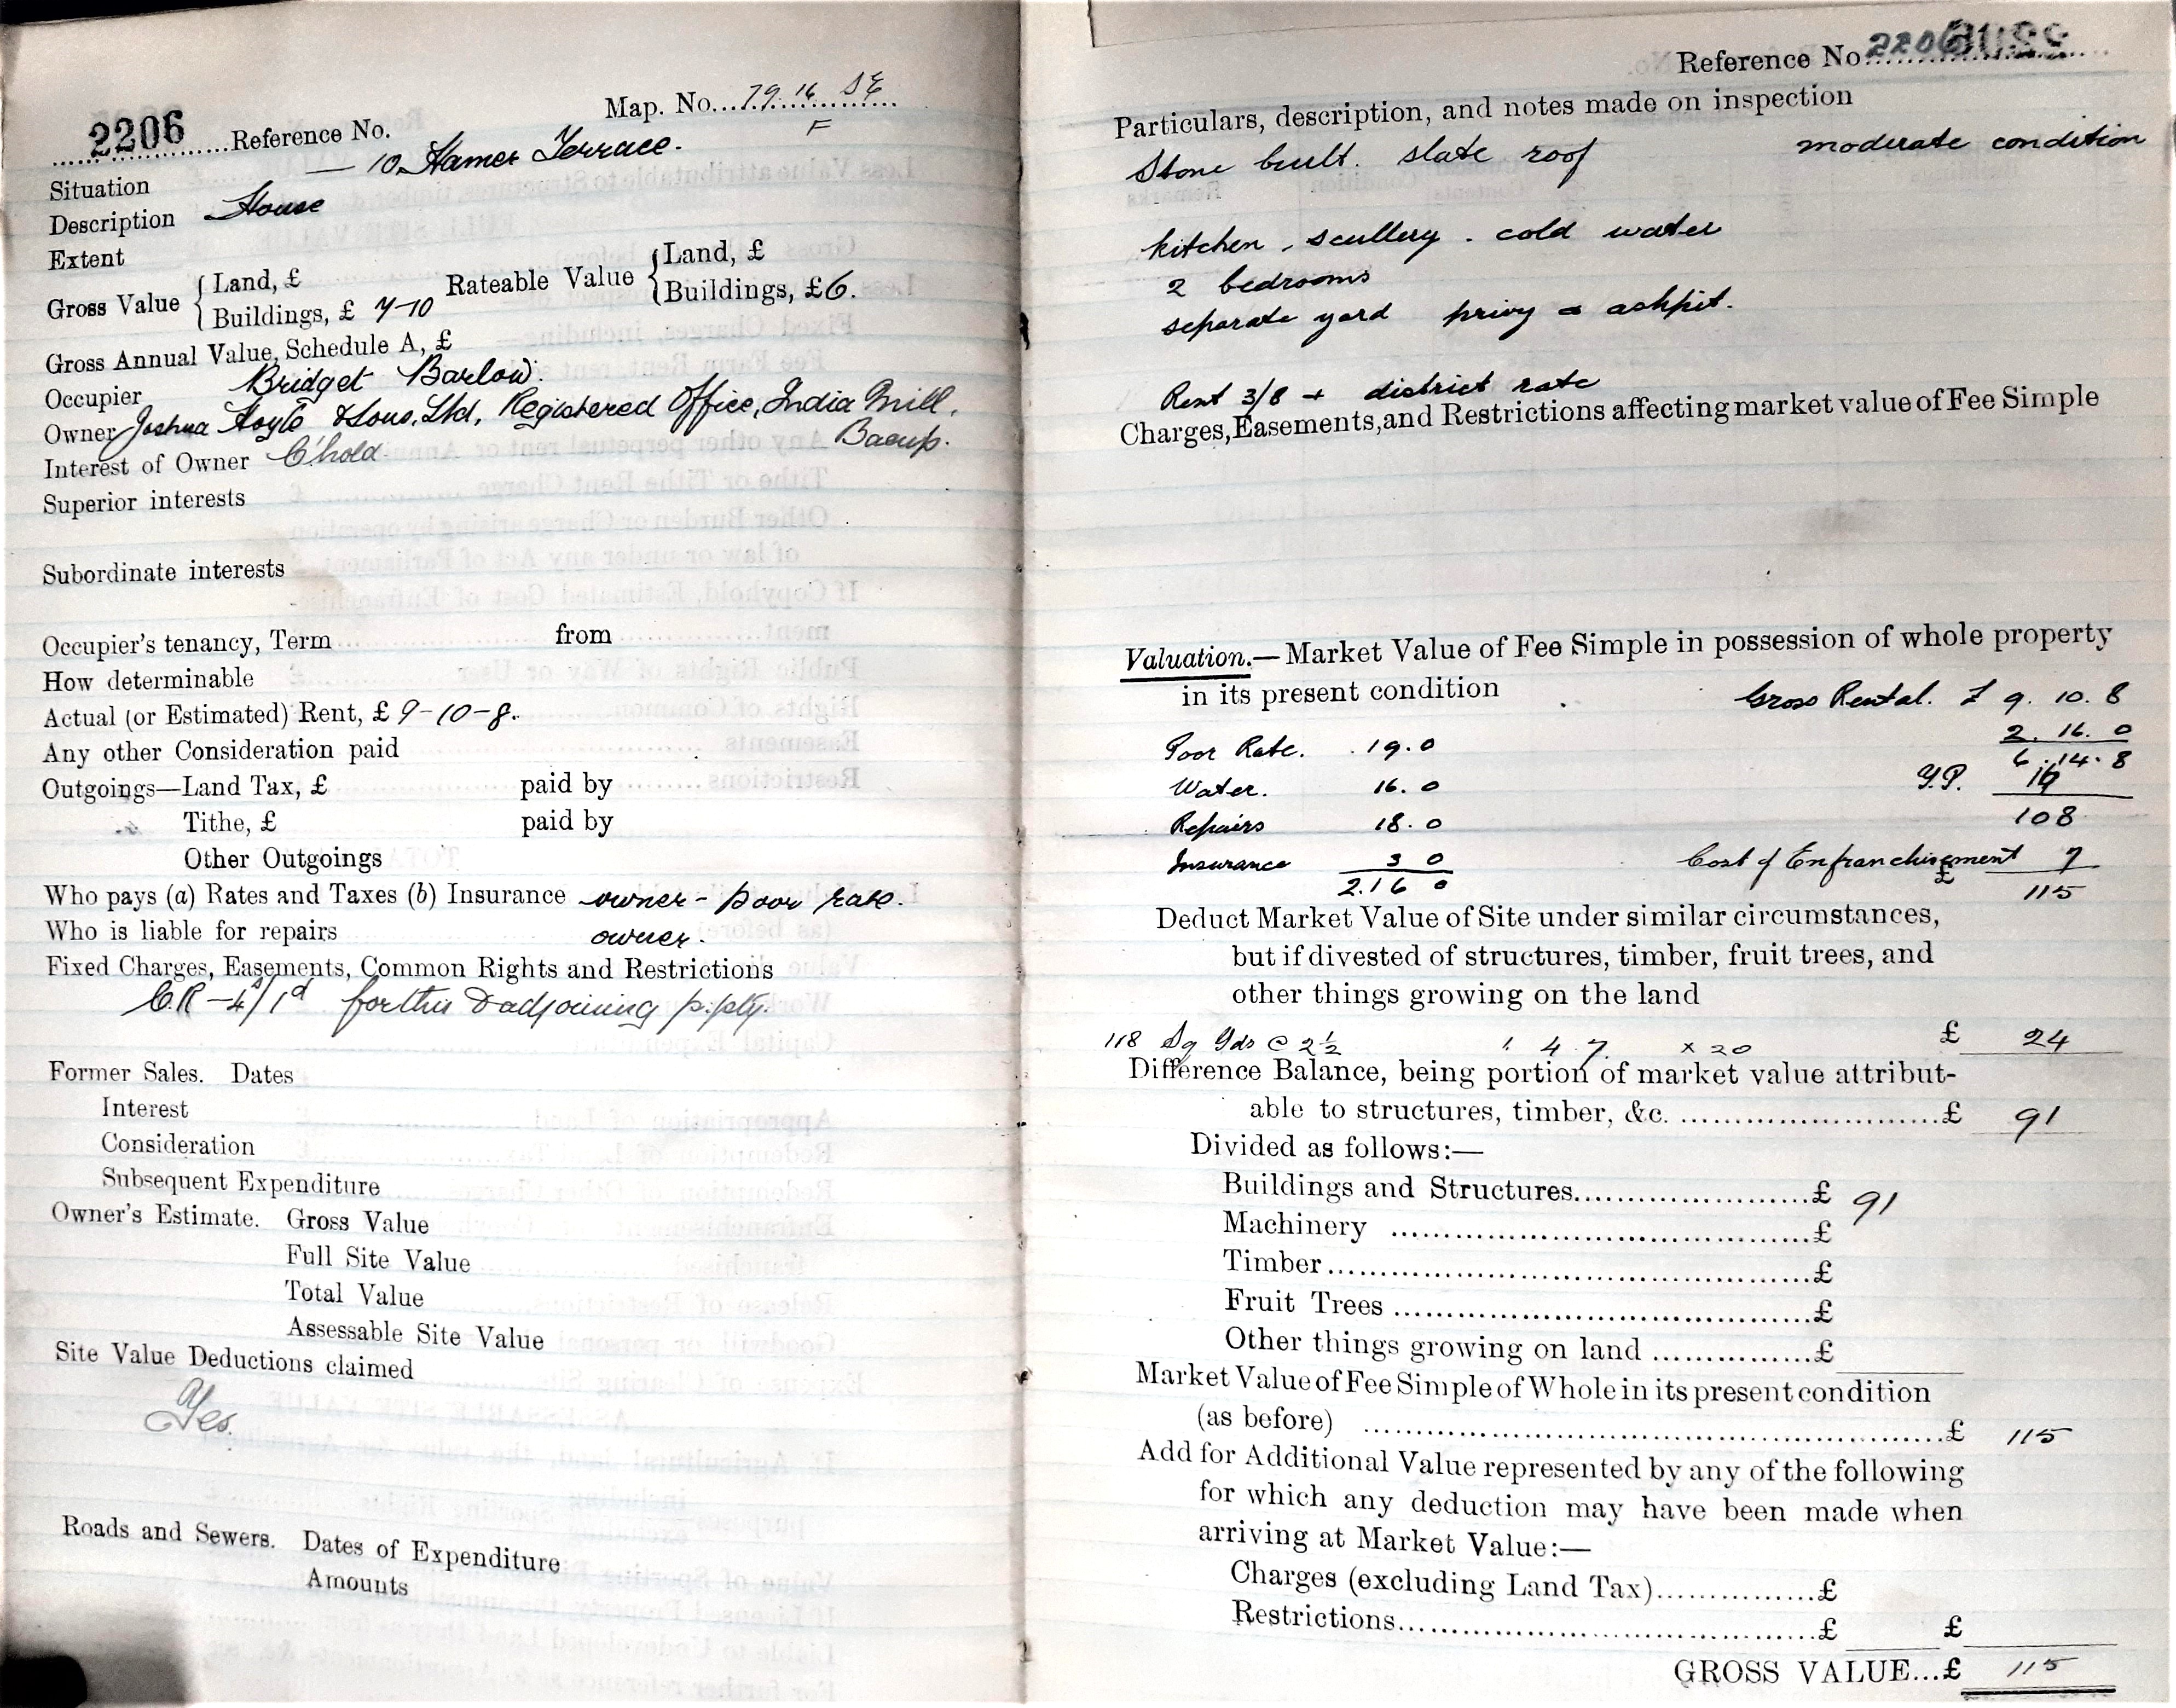 2206 Reference No. Map. No. 79.16 SE
F
Situation — 10 Hamer Terrace.
Description House
Extent
Gross Value { Land, £ Rateable Value { Land, £
Buildings, £ 7-10 Buildings, £6.
Gross Annual Value, Schedule A, £
Occupier Bridget Barlow.
Owner Joshua Hoyle & Sons, Ltd, Registered Office, India Mill,
Bacup.
Interest of Owner C'hold
Superior interests
Subordinate interests
Occupier's tenancy, Term from
How determinable
Actual (or Estimated) Rent, £ 9-10-8.
Any other Consideration paid
Outgoings—Land Tax, £ paid by
Tithe, £ paid by
Other Outgoings
Who pays (a) Rates and Taxes (b) Insurance owner - poor rate.
Who is liable for repairs owner.
Fixed Charges, Easements, Common Rights and Restrictions
C.R - 4s/1d for this & adjoining p.pty.
Former Sales. Dates
Interest
Consideration
Subsequent Expenditure
Owner's Estimate. Gross Value
Full Site Value
Total Value
Assessable Site Value
Site Value Deductions claimed
Yes.
Roads and Sewers. Dates of Expenditure
Amounts
Reference No. 2206
Particulars, description, and notes made on inspection
Stone built. slate roof moderate condition
kitchen, scullery. cold water
2 bedrooms
separate yard privy & ashpit.
Rent 3/8 + district rate
Charges, Easements, and Restrictions affecting market value of Fee Simple
Valuation.—Market Value of Fee Simple in possession of whole property
in its present condition Gross Rental. £ 9. 10. 8
Poor Rate. .19.0 2. 16. 0
6. 14. 8
Water. 16. 0 Y.P. 16
Repairs 18. 0 108
Insurance 3 0 Cost of Enfranchisement 7
2.16 0 £ 115
Deduct Market Value of Site under similar circumstances,
but if divested of structures, timber, fruit trees, and
other things growing on the land
118 Sq Yds @ 2½ 1. 4. 7. x 20 £ 24
Difference Balance, being portion of market value attribut-
able to structures, timber, &c. £ 91
Divided as follows:—
Buildings and Structures £ 91
Machinery £
Timber £
Fruit Trees £
Other things growing on land £
Market Value of Fee Simple of Whole in its present condition
(as before) £ 115
Add for Additional Value represented by any of the following
for which any deduction may have been made when
arriving at Market Value:—
Charges (excluding Land Tax) £
Restrictions £ £
GROSS VALUE...£ 115